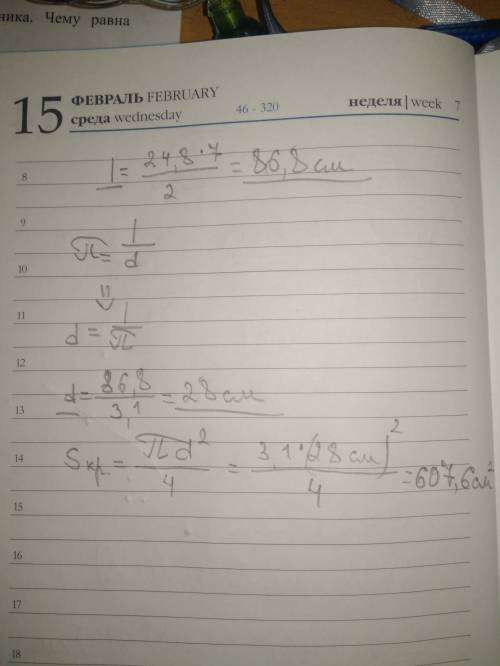 ника. Чему равна
15 ФЕВРАЛЬ FEBRUARY
среда wednesday
46 - 320
неделя | week 7
8
l = 24,8·7 / 2 = 86,8 см
9
π = l / d
10
⇓
11
d = l / π
12
d = 86,8 / 3,1 = 28 см
13
14
Sкр. = πd² / 4 = 3,1·(28 см)² / 4 = 607,6 см²
15
16
17
18